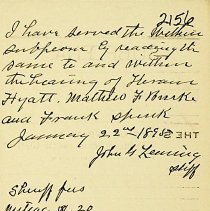 256
I have served the within
subpoena by reading the
same to and within
the hearing of Hiram
Hyatt. Mathew F Burke
and Frank Spink
January 22nd 1898
THE S
John G Leming
Shff
Sheriff fees